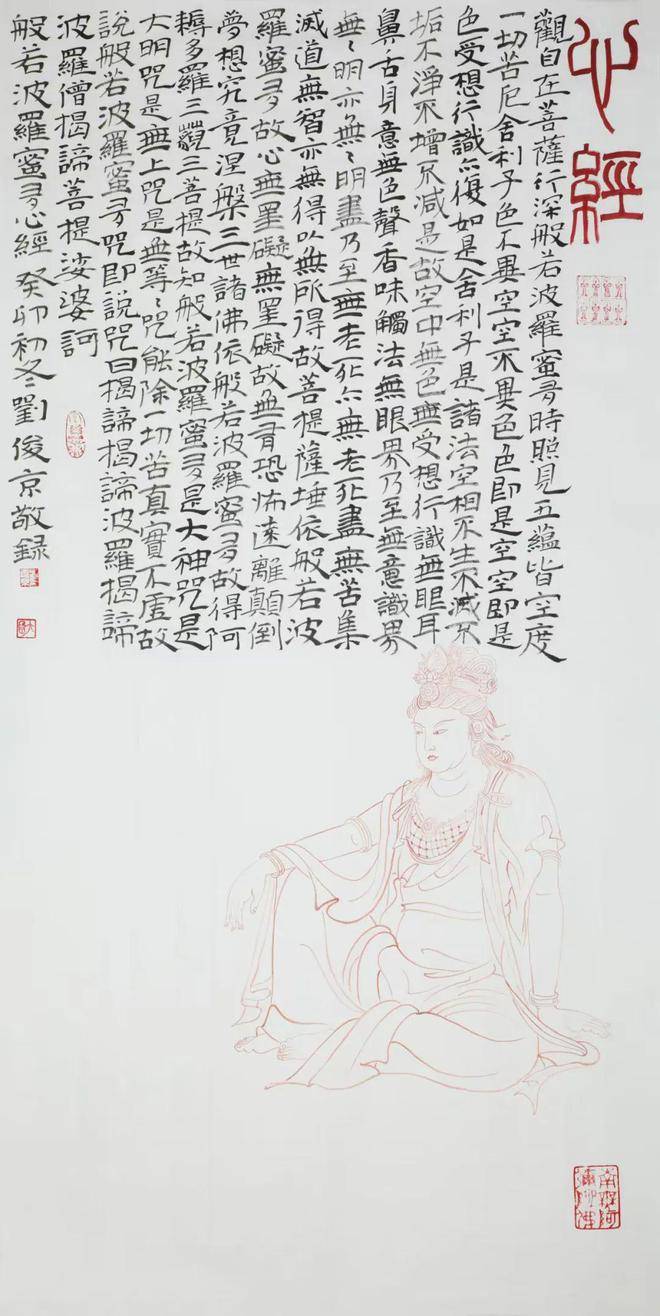 心經
觀自在菩薩行深般若波羅蜜多時照見五蘊皆空度
一切苦厄舍利子色不異空空不異色色即是空空即是
色受想行識亦復如是舍利子是諸法空相不生不滅不
垢不淨不增不減是故空中無色無受想行識無眼耳
鼻舌身意無色聲香味觸法無眼界乃至無意識界
無〻明亦無〻明盡乃至無老死亦無老死盡無苦集
滅道無智亦無得以無所得故菩提薩埵依般若波
羅蜜多故心無罣礙無罣礙故無有恐怖遠離顛倒
夢想究竟涅槃三世諸佛依般若波羅蜜多故得阿
耨多羅三藐三菩提故知般若波羅蜜多是大神咒是
大明咒是無上咒是無等〻咒能除一切苦真實不虛故
說般若波羅蜜多咒即說咒曰揭諦揭諦波羅揭諦
波羅僧揭諦菩提娑婆訶
般若波羅蜜多心經 癸卯初冬劉俊京敬録